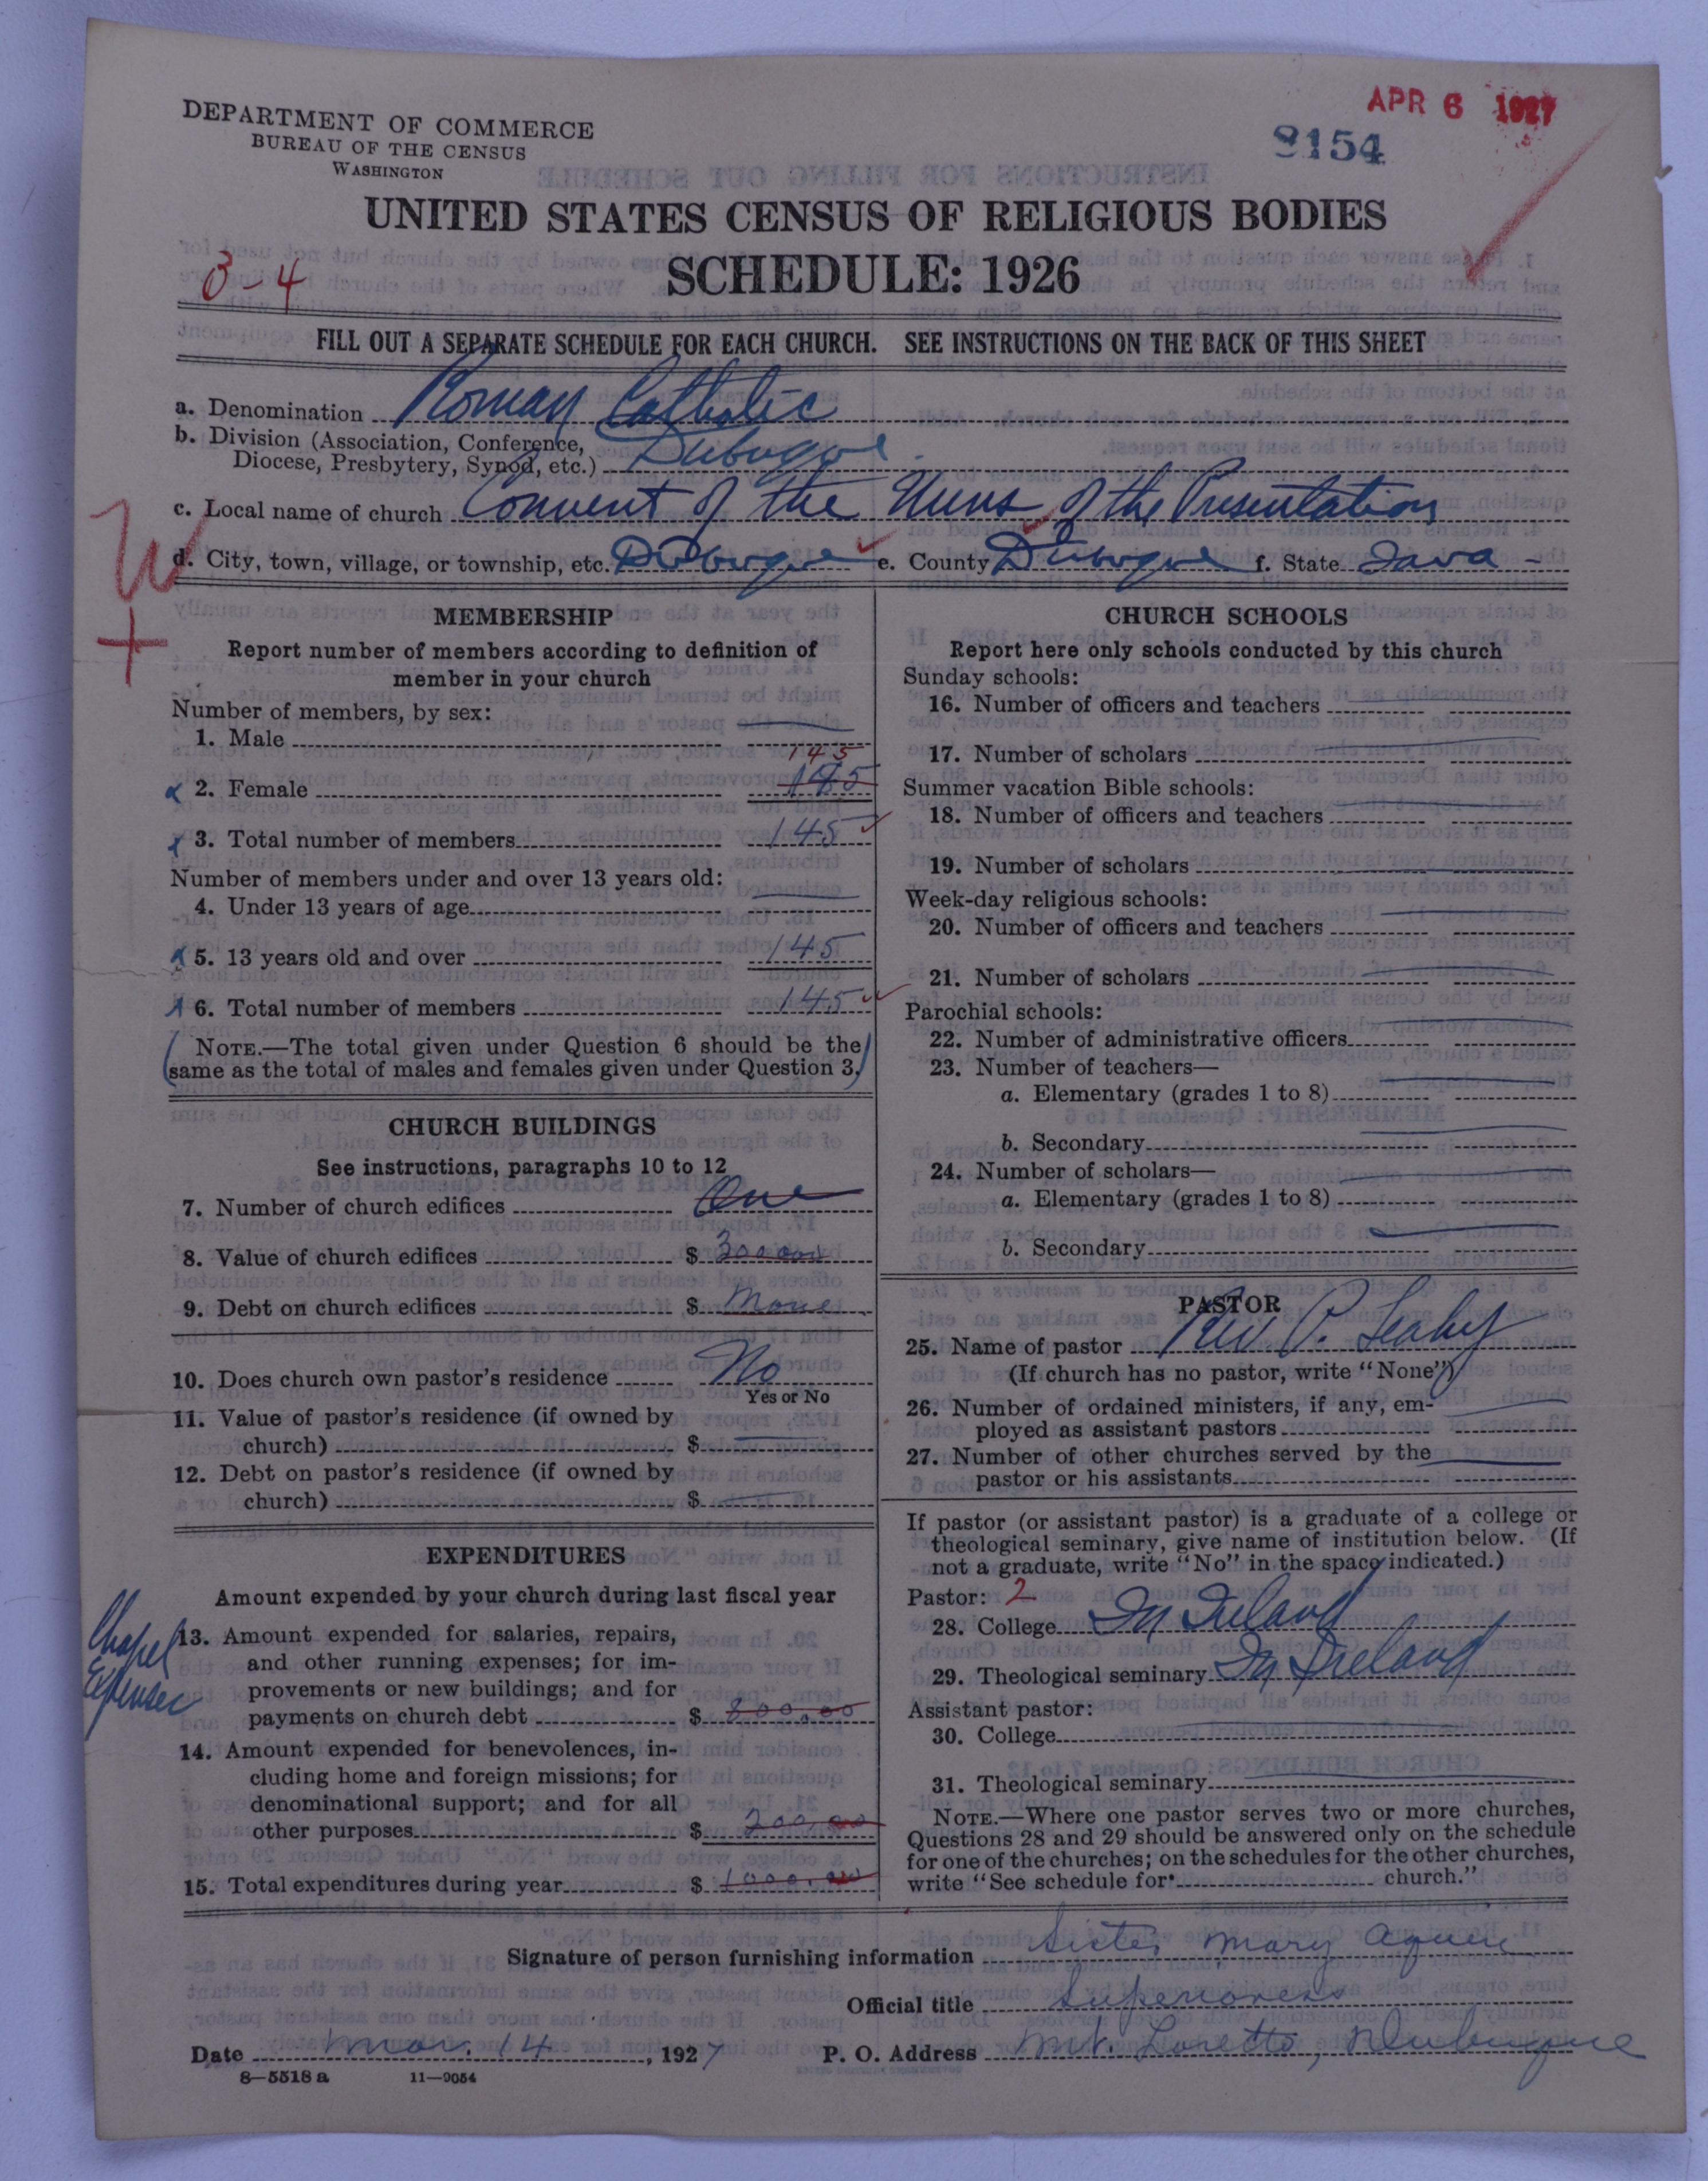 DEPARTMENT OF COMMERCE
BUREAU OF THE CENSUS
WASHINGTON
APR 6 1927
8154
UNITED STATES CENSUS OF RELIGIOUS BODIES
SCHEDULE: 1926
3-4
FILL OUT A SEPARATE SCHEDULE FOR EACH CHURCH. SEE INSTRUCTIONS ON THE BACK OF THIS SHEET
a. Denomination Roman Catholic
b. Division (Association, Conference,
Diocese, Presbytery, Synod, etc.) Dubuque
c. Local name of church Convent of the Nuns of the Presentation
W
d. City, town, village, or township, etc. Dubuque e. County Dubuque f. State Iowa
+
MEMBERSHIP
Report number of members according to definition of
member in your church
Number of members, by sex:
1. Male
145
2. Female
3. Total number of members 145
Number of members under and over 13 years old:
4. Under 13 years of age
5. 13 years old and over 145
6. Total number of members 145
NOTE.—The total given under Question 6 should be the
same as the total of males and females given under Question 3.
CHURCH BUILDINGS
See instructions, paragraphs 10 to 12
7. Number of church edifices One
8. Value of church edifices $ 300000
9. Debt on church edifices $ None
10. Does church own pastor's residence No
Yes or No
11. Value of pastor's residence (if owned by
church) $
12. Debt on pastor's residence (if owned by
church) $
EXPENDITURES
Amount expended by your church during last fiscal year
Chapel
Expenses
13. Amount expended for salaries, repairs,
and other running expenses; for im-
provements or new buildings; and for
payments on church debt $ 800.00
14. Amount expended for benevolences, in-
cluding home and foreign missions; for
denominational support; and for all
other purposes $ 200.00
15. Total expenditures during year $ 1000.00
CHURCH SCHOOLS
Report here only schools conducted by this church
Sunday schools:
16. Number of officers and teachers
17. Number of scholars
Summer vacation Bible schools:
18. Number of officers and teachers
19. Number of scholars
Week-day religious schools:
20. Number of officers and teachers
21. Number of scholars
Parochial schools:
22. Number of administrative officers
23. Number of teachers—
a. Elementary (grades 1 to 8)
b. Secondary
24. Number of scholars—
a. Elementary (grades 1 to 8)
b. Secondary
PASTOR
25. Name of pastor Rev P. Leahy
(If church has no pastor, write "None")
26. Number of ordained ministers, if any, em-
ployed as assistant pastors
27. Number of other churches served by the
pastor or his assistants
If pastor (or assistant pastor) is a graduate of a college or
theological seminary, give name of institution below. (If
not a graduate, write "No" in the space indicated.)
Pastor: 2
28. College In Ireland
29. Theological seminary In Ireland
Assistant pastor:
30. College
31. Theological seminary
NOTE.—Where one pastor serves two or more churches,
Questions 28 and 29 should be answered only on the schedule
for one of the churches; on the schedules for the other churches,
write "See schedule for church."
Signature of person furnishing information Sister Mary Aquin
Official title Superioress
Date Mar. 14, 1927 P. O. Address Mt. Loretto, Dubuque
8—5518 a 11—9054